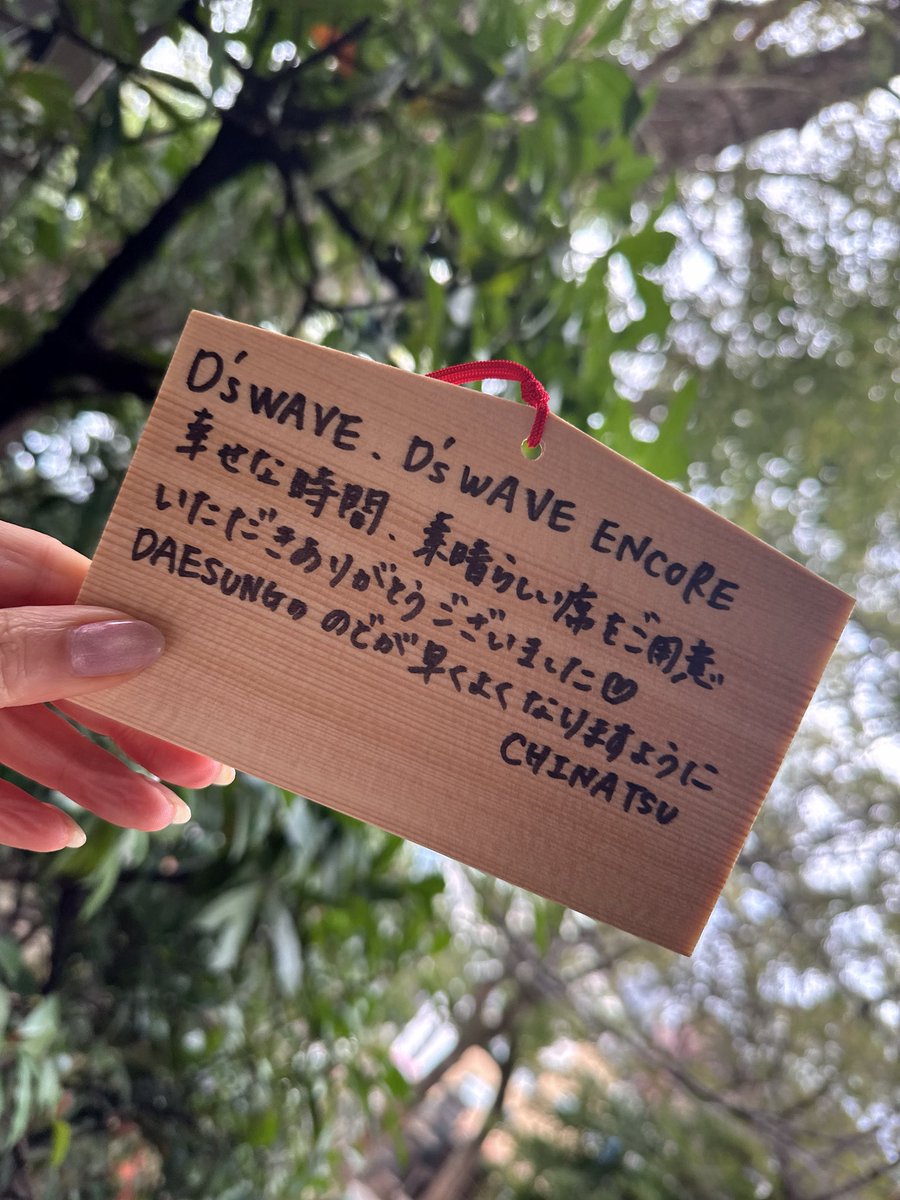 D's WAVE、D's WAVE ENCORE
幸せな時間、素晴らしい席をご用意
いただきありがとうございました♡
DAESUNGの のどが早くよくなりますように
CHINATSU